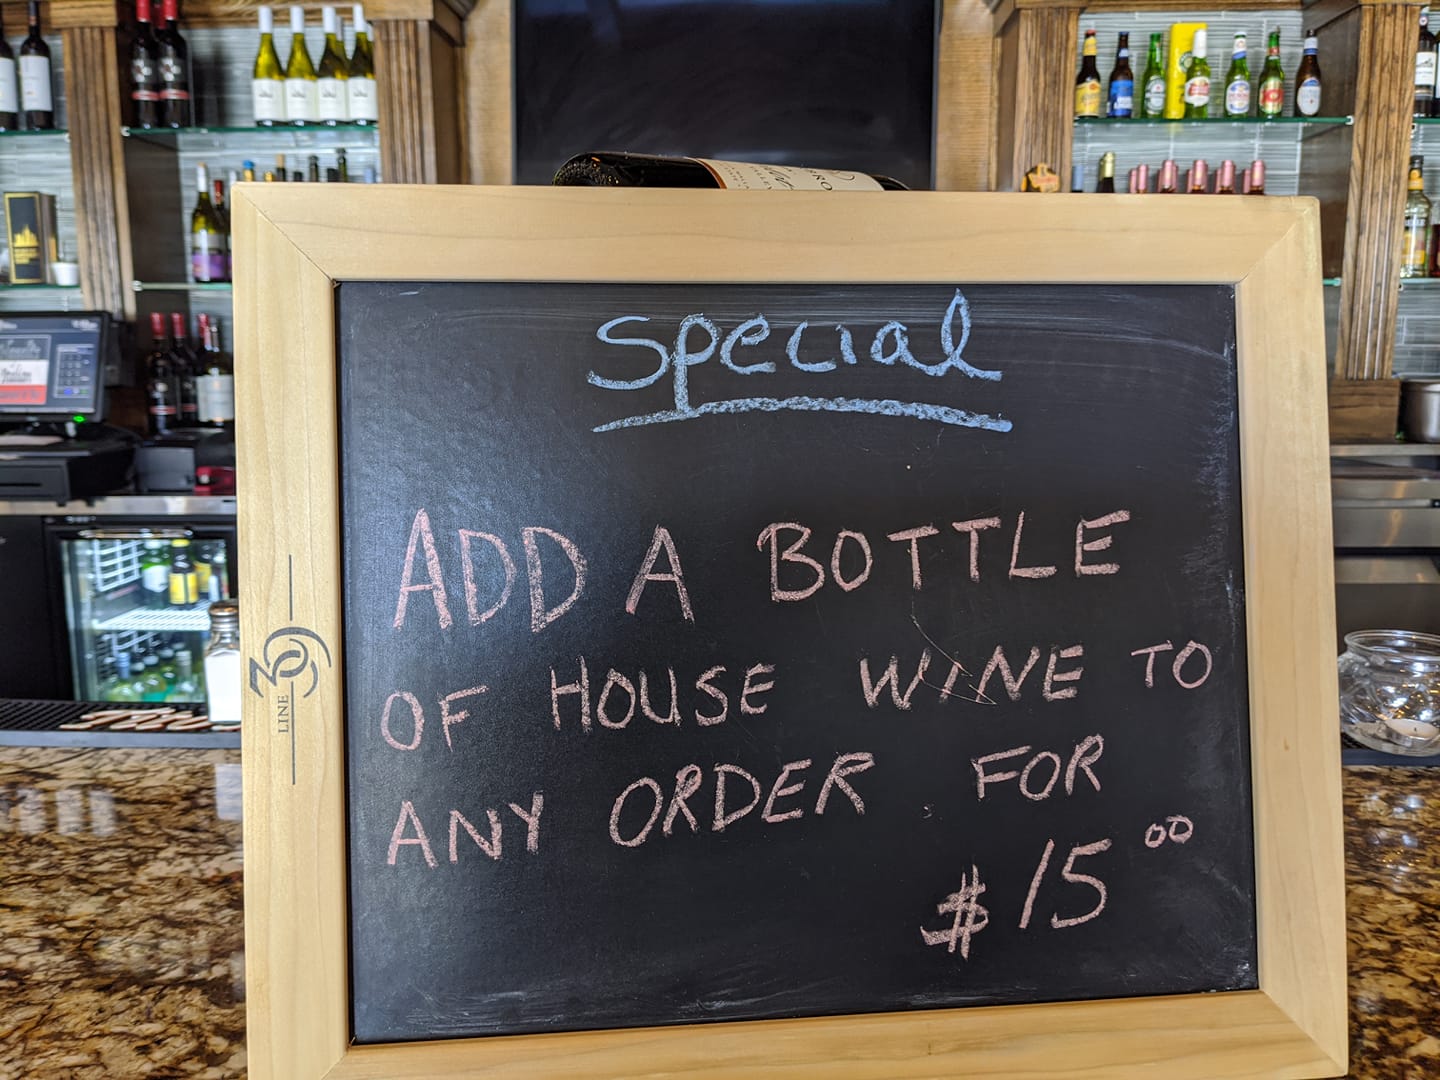 Special
ADD A BOTTLE
OF HOUSE WINE TO
ANY ORDER FOR
$15.00
LINE 39